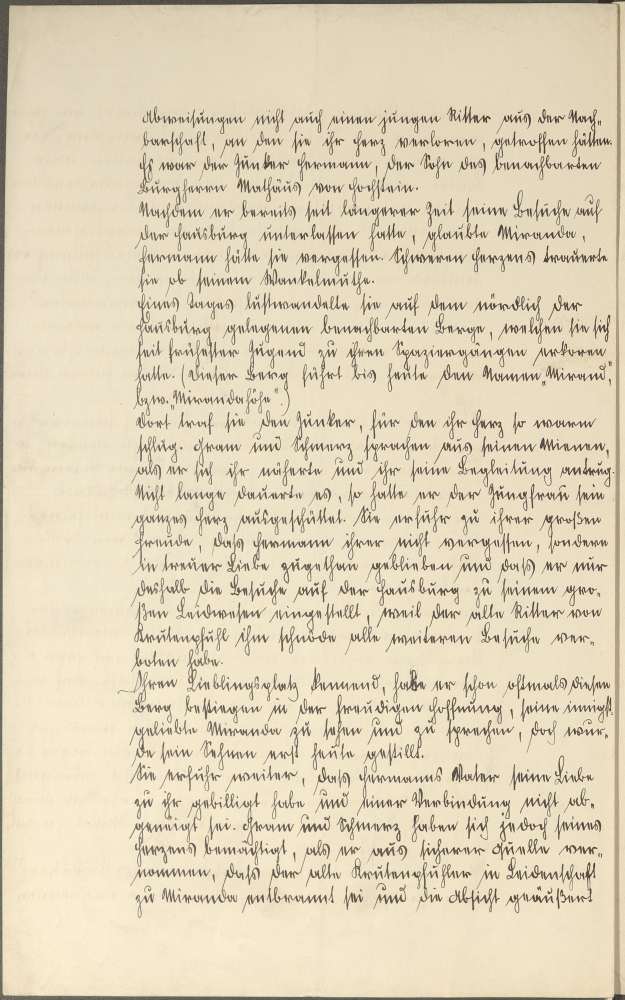 Abweisungen nicht auch einen jungen Ritter aus der Nach-
barschaft, an den sie ihr Herz verloren, getroffen hätten.
Es war der Junker Hermann, der Sohn des benachbarten
Burgherrn Mathäus von Hochstein.
Nachdem er bereits seit längerer Zeit seine Besuche auf
der Hausburg unterlassen hatte, glaubte Miranda,
Hermann hätte sie vergessen. Schweren Herzens trauerte
sie ob seinem Wankelmuthe.
Eines Tages lustwandelte sie auf dem nördlich der
Hausburg gelegenen benachbarten Berge, welchen sie sich
seit frühester Jugend zu ihren Spaziergängen erkoren
hatte. (Dieser Berg führt bis heute den Namen „Mirand",
bzw. „Mirandahöhe".)
Dort traf sie den Junker, für den ihr Herz so warm
schlug. Gram und Schmerz sprachen aus seinen Mienen,
als er sich ihr näherte und ihr seine Begleitung antrug.
Nicht lange dauerte es, so hatte er der Jungfrau sein
ganzes Herz ausgeschüttet. Sie erfuhr zu ihrer großen
Freude, dass Hermann ihrer nicht vergessen, sondern
in treuer Liebe zugethan geblieben und dass er nur
deshalb die Besuche auf der Hausburg zu seinem gro-
ßen Leidwesen eingestellt, weil der alte Ritter von
Krutenpfuhl ihm schnöde alle weiteren Besuche ver-
boten habe.
Ihren Lieblingsplatz kennend, habe er schon oftmals diesen
Berg bestiegen in der freudigen Hoffnung, seine innigst
geliebte Miranda zu sehen und zu sprechen, doch wur-
de sein Sehnen erst heute gestillt.
Sie erfuhr weiter, dass Hermanns Vater seine Liebe
zu ihr gebilligt habe und einer Verbindung nicht ab-
geneigt sei. Gram und Schmerz haben sich jedoch seines
Herzens bemächtigt, als er aus sicherer Quelle ver-
nommen, dass der alte Krutenpfuhler in Leidenschaft
zu Miranda entbrannt sei und die Absicht geäußert